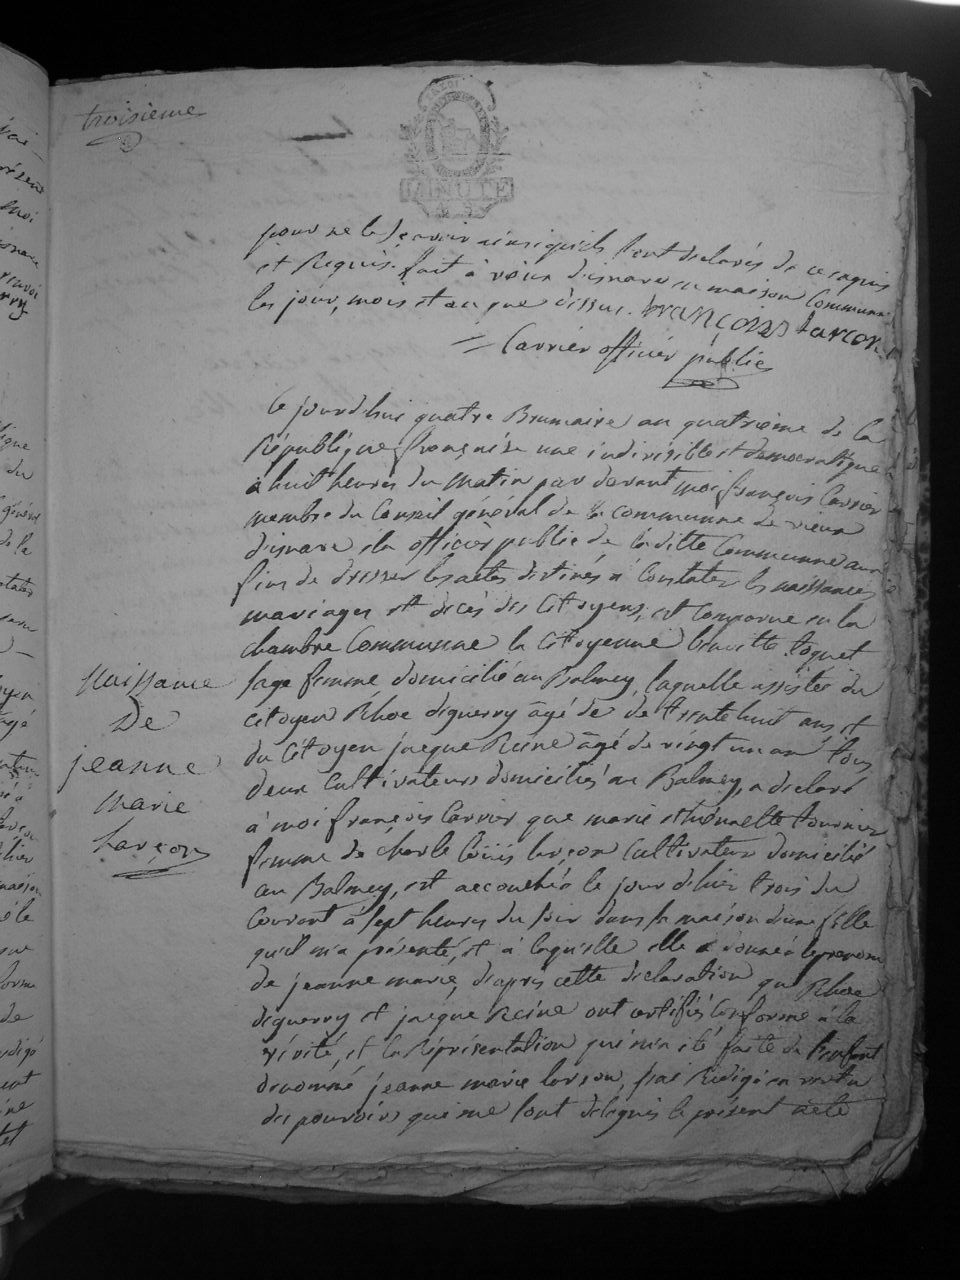 troisieme
MINUTE
pour ne le scavoir ainsi quils l'ont declarés de ce enquis
et Requis. fait à vieux d'isnave en maison Commune
les jour, mois et an que dessus. françois larçon
= Carrier officier public
Ce jourd'hui quatre Brumaire an quatrieme de la
République françaisse une indivisible et democratique
à huit heures du matin par devant moi françois Carrier
membre du Conseil général de la communne de vieux
disnave élu officier public de laditte Communne aux
fins de dresser les actes destinés à Constater les naissances
mariages et décès des Citoyens, est Comparue en la
chambre Communne la Citoyenne benoitte toquet
Naissance
de
jeanne
marie
larçon
sage femme domicilié au Balmey, laquelle assistée du
citoyen Rhoc diguerry âgé de de trente huit ans, et
du Citoyen jacque Reine âgé de vingt un an tous
deux Cultivateurs domiciliés au Balmey, a declaré
à moi françois Carrier que marie thonnette tournier
femme de charle Loüis larçon Cultivateur domicilié
au Balmey, est accouchée le jour d'hier trois du
Courant à sept heures du soir dans sa maison d'une fille
quil m'a présenté, et à laquelle elle a donné le prenom
de jeanne marie, d'après cette declaration que Rhoc
diguerry et jacque Reine ont certifiés conforme à la
vérité, et la Représentation qui m'a été faite de l'enfant
denommé jeanne marie larson, j'ai Rédigé en vertu
des pouvoirs qui me sont delegués le présent acte